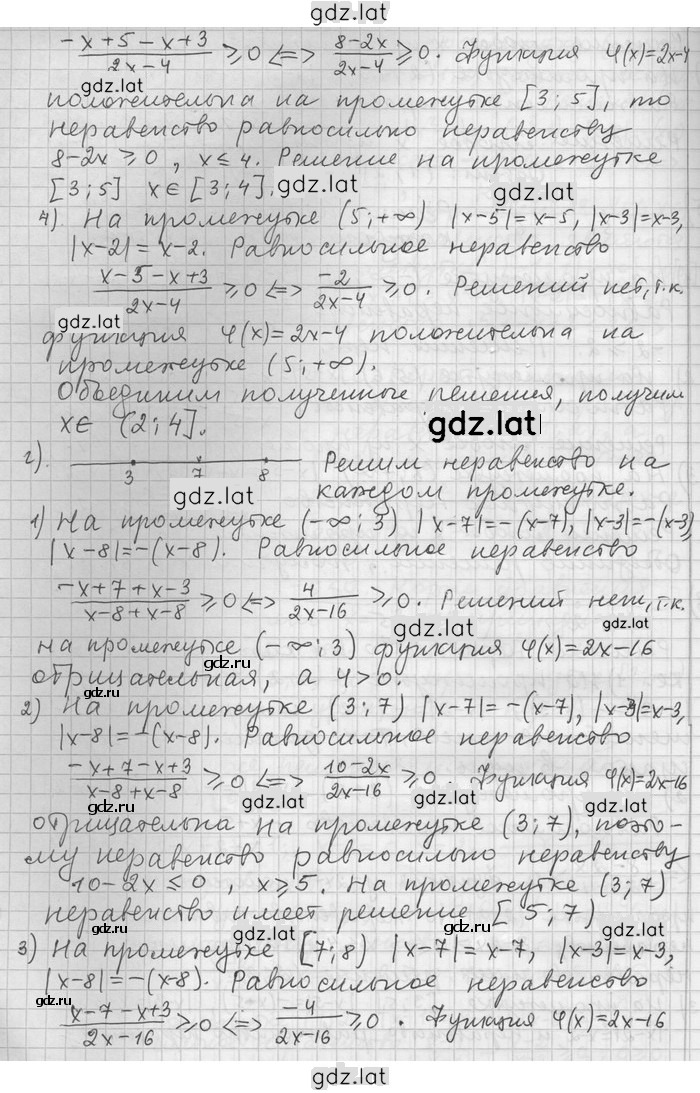 gdz.lat
(-x+5-x+3)/(2x-4) ≥ 0 <=> (8-2x)/(2x-4) ≥ 0. Функция φ(x)=2x-4
gdz.lat gdz.lat
положительна на промежутке [3; 5], то
неравенство равносильно неравенству
8-2x ≥ 0, x ≤ 4. Решение на промежутке
[3; 5] x ∈ [3; 4]. gdz.lat gdz.lat
4) На промежутке (5; +∞) |x-5| = x-5, |x-3| = x-3,
|x-2| = x-2. Равносильное неравенство
(x-5-x+3)/(2x-4) ≥ 0 <=> (-2)/(2x-4) ≥ 0. Решений нет, т.к.
gdz.lat gdz.lat
функция φ(x)=2x-4 положительна на
промежутке (5; +∞).
Объединим полученные решения, получим
x ∈ (2; 4]. gdz.lat
г). 3 7 8 Решим неравенство на
gdz.lat каждом промежутке.
1) На промежутке (-∞; 3) |x-7| = -(x-7), |x-3| = -(x-3),
|x-8| = -(x-8). Равносильное неравенство
(-x+7+x-3)/(x-8+x-8) ≥ 0 <=> 4/(2x-16) ≥ 0. Решений нет, т.к.
gdz.lat gdz.lat
на промежутке (-∞; 3) функция φ(x)=2x-16
gdz.ru
отрицательная, а 4>0.
gdz.lat
2) На промежутке (3; 7) |x-7| = -(x-7), |x-3| = x-3,
gdz.ru gdz.lat
|x-8| = -(x-8). Равносильное неравенство
(-x+7-x+3)/(x-8+x-8) ≥ 0 <=> (10-2x)/(2x-16) ≥ 0. Функция φ(x)=2x-16
gdz.lat gdz.lat gdz.lat
отрицательна на промежутке (3; 7), поэто-
му неравенство равносильно неравенству
10-2x ≤ 0, x ≥ 5. На промежутке (3; 7)
неравенство имеет решение [5; 7)
3) На промежутке [7; 8) |x-7| = x-7, |x-3| = x-3,
gdz.ru gdz.ru
|x-8| = -(x-8). Равносильное неравенство
gdz.lat gdz.lat
(x-7-x+3)/(2x-16) ≥ 0 <=> (-4)/(2x-16) ≥ 0. Функция φ(x)=2x-16
gdz.lat